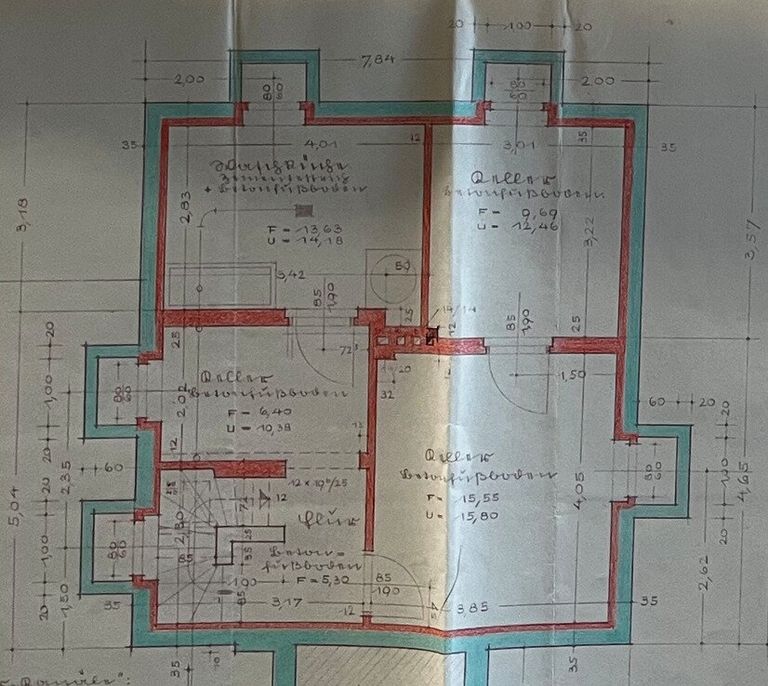 20 1.00 20
7,84
2,00
80
60
80
60
2.00
35
4,01
12
3,01
35
35
Waschküche
Zementestrich
+ Betonfußboden
Keller
Betonfußboden
2,83
F = 13,63
U = 14,18
F = 9,69
U = 12,46
3,22
3,18
3,57
3,42
50
85
1,90
25
14/14
12
85
1,90
25
20
25
72⁵
20
32
1,50
60 20
20
1,00
80
60
Keller
Betonfußboden
2,02
F = 6,40
U = 10,38
12
12
20
60
2,35
Keller
Betonfußboden
F = 15,55
U = 15,80
4,05
80
60
1,00
20
4,65
12 x 19⁶/25
12
Flur
Beton=
fußboden
F = 5,30
5,04
20
1,00
20
1,50
80
60
2,80
25
85
1.90
2,62
35
1.00
85
3,17
12
3,85
35
35
10
35